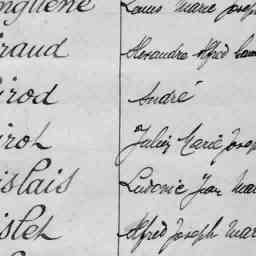 Louis Marie Joseph
raud Alexandre Alfred
irod André
irol Julien Marie Joseph
islais Ludovic Jean Mar
islet Alfred Joseph Mar